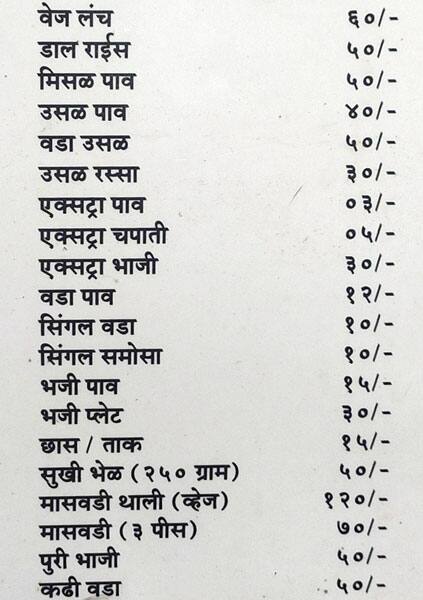 वेज लंच ६०/-
डाल राईस ५०/-
मिसळ पाव ५०/-
उसळ पाव ४०/-
वडा उसळ ५०/-
उसळ रस्सा ३०/-
एक्सट्रा पाव ०३/-
एक्सट्रा चपाती ०५/-
एक्सट्रा भाजी ३०/-
वडा पाव १२/-
सिंगल वडा १०/-
सिंगल समोसा १०/-
भजी पाव १५/-
भजी प्लेट ३०/-
छास / ताक १५/-
सुखी भेळ (२५० ग्राम) ५०/-
मासवडी थाली (व्हेज) १२०/-
मासवडी (३ पीस) ७०/-
पुरी भाजी ५०/-
कढी वडा ५०/-